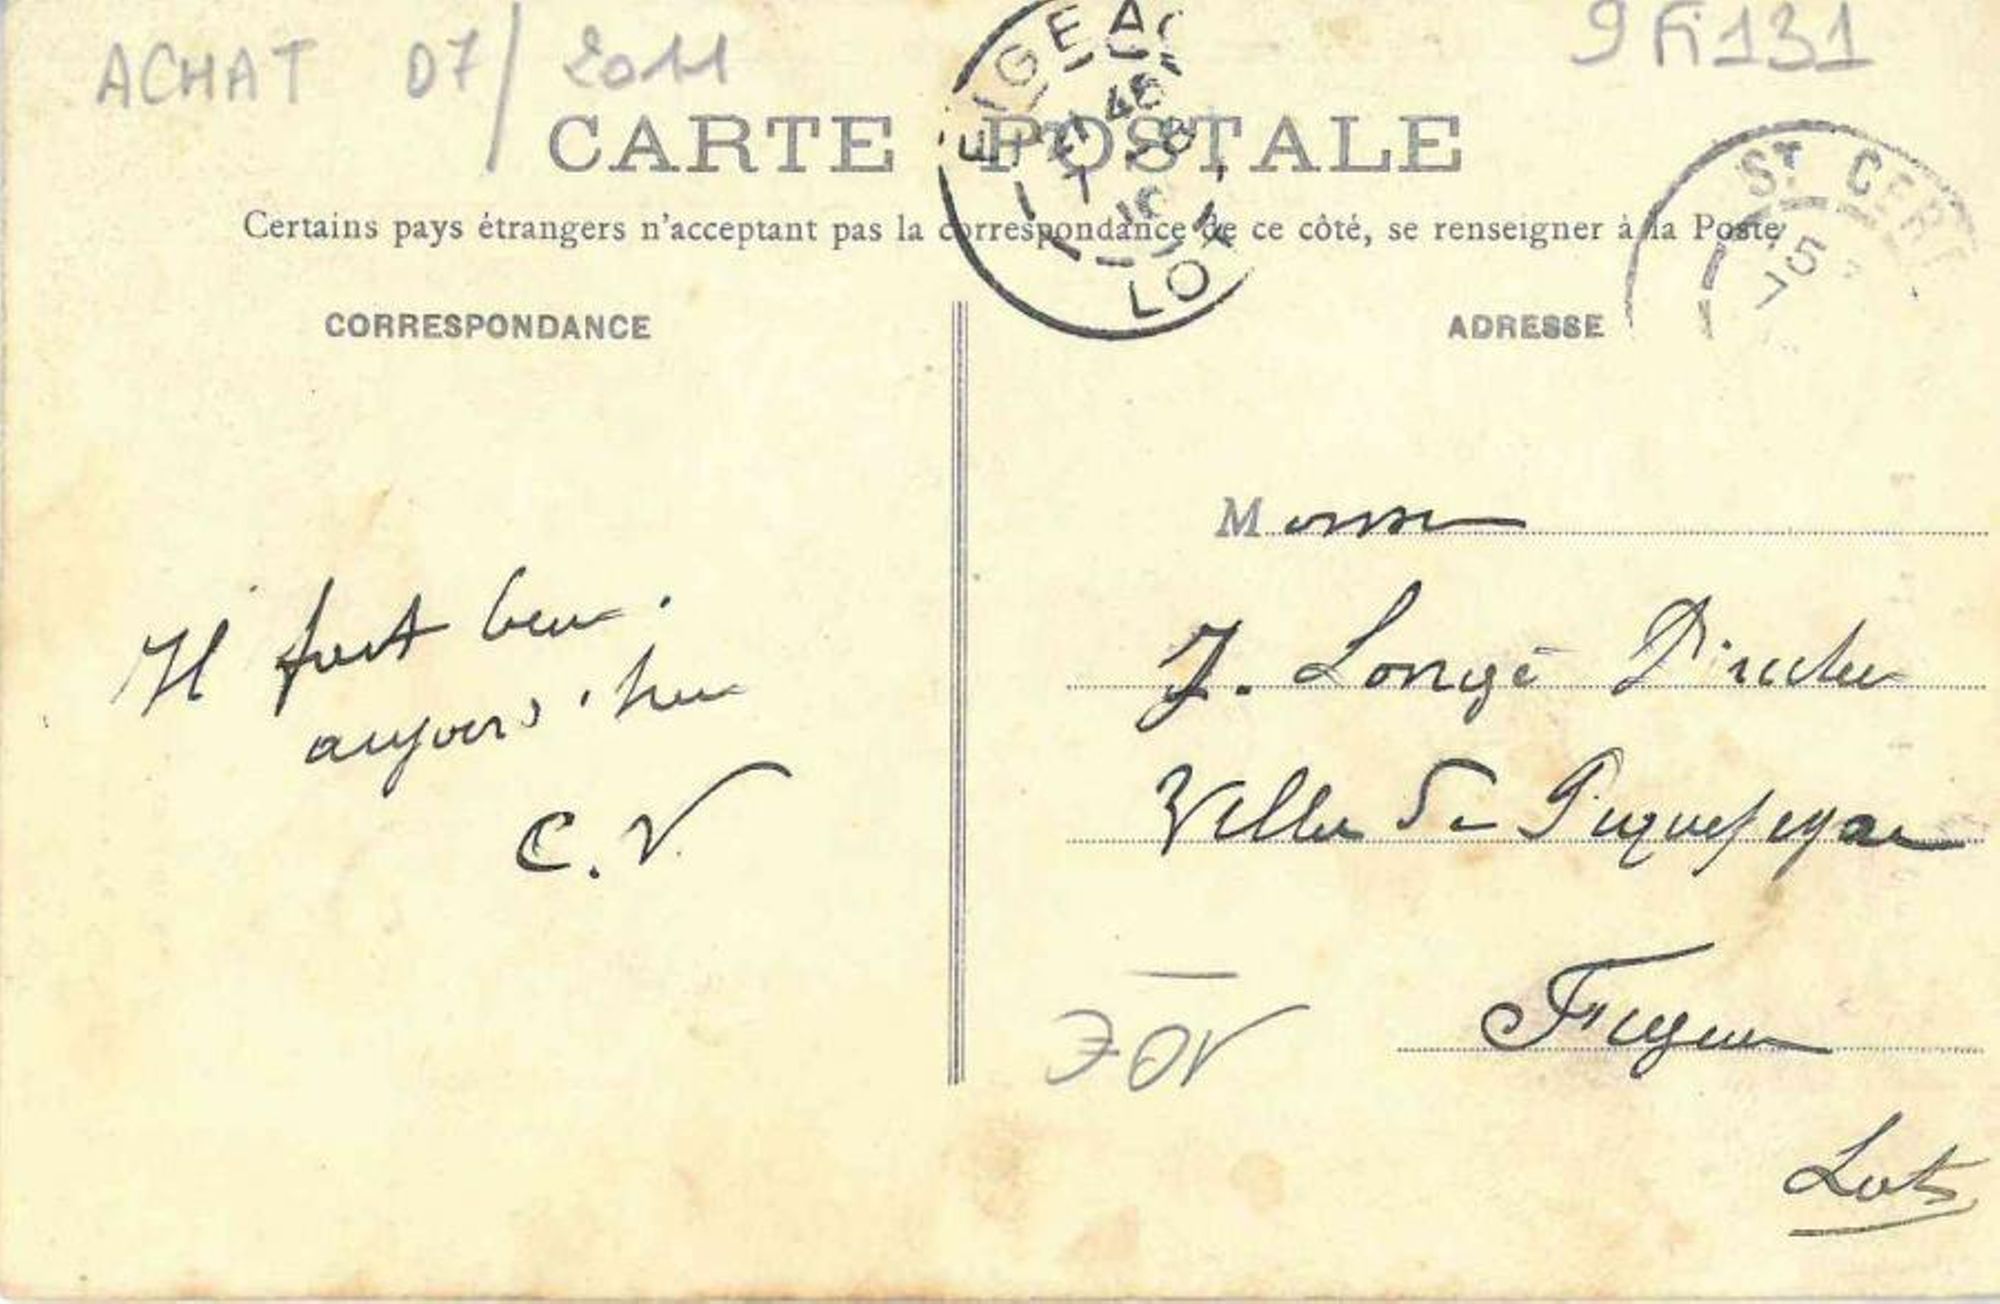 ACHAT 07/2011
9 Fi 131
CARTE POSTALE
FIGEAC
LOT
ST CERE
Certains pays étrangers n'acceptant pas la correspondance de ce côté, se renseigner à la Poste
CORRESPONDANCE
Il fait beau
aujourd'hui
C. V
ADRESSE
Monsieur
J. Longé
Villa de
Figeac
Lot